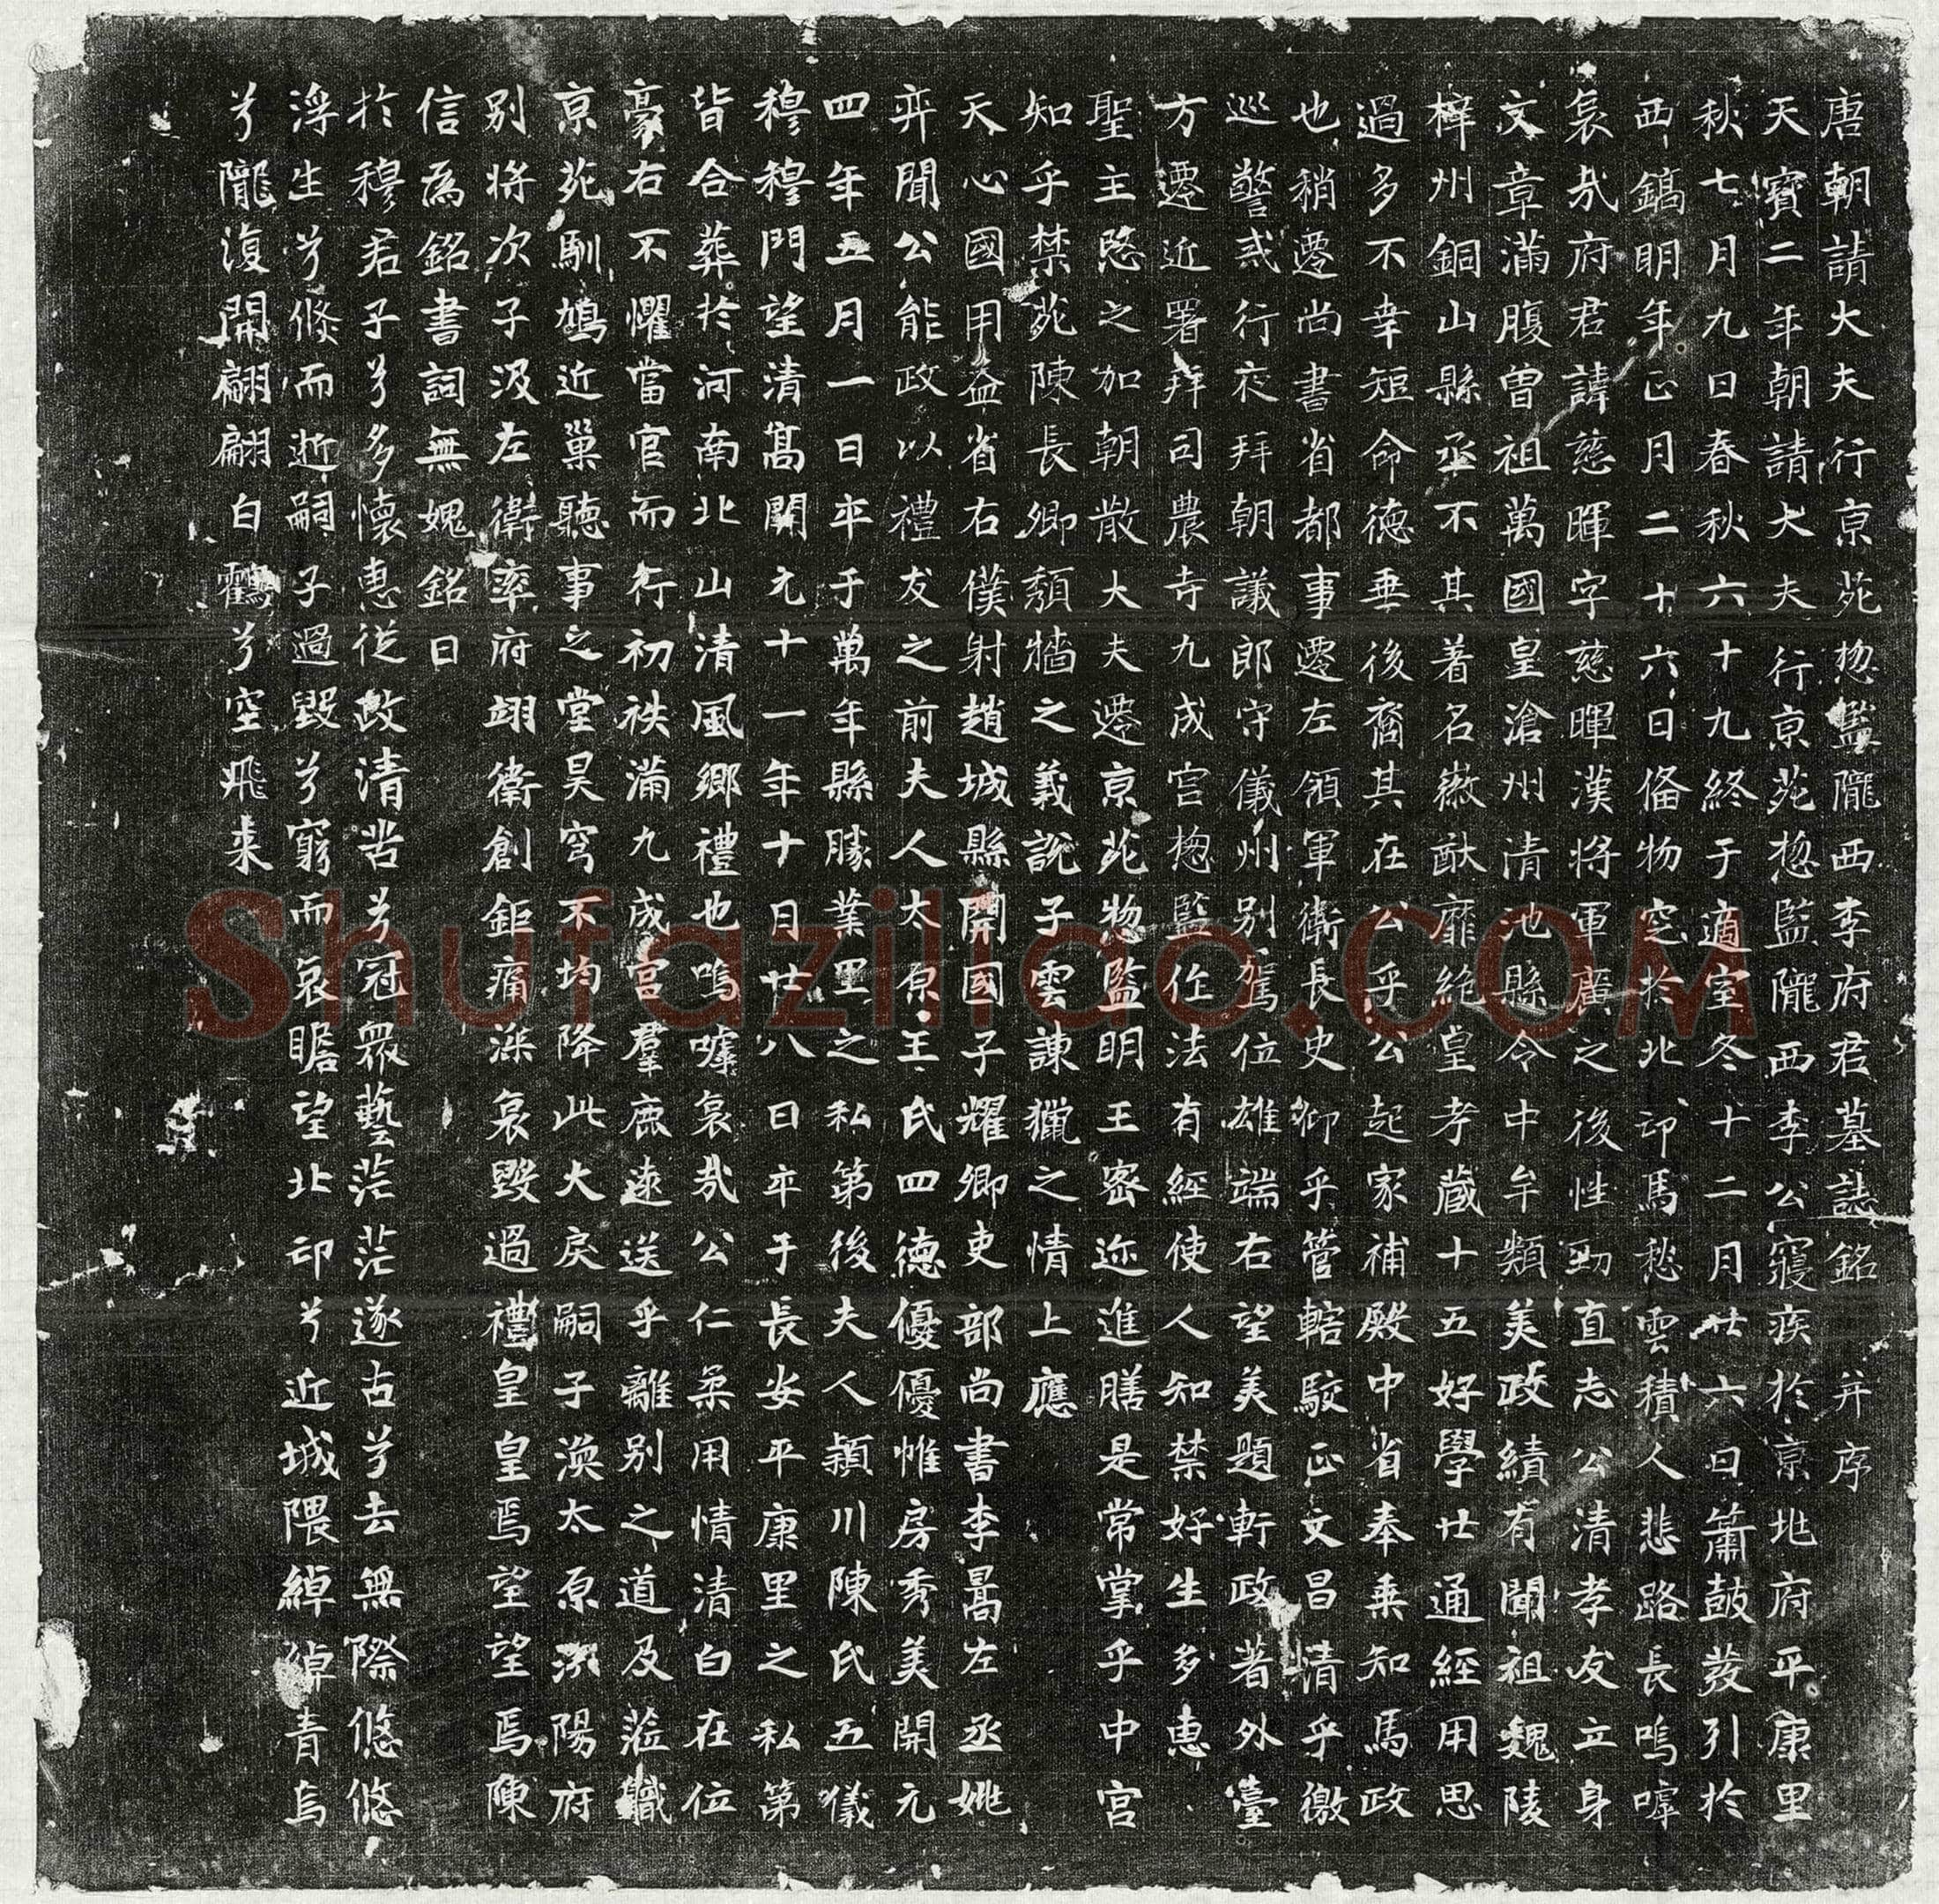 唐朝請大夫行京苑揔監隴西李府君墓誌銘并序
天寶二年朝請大夫行京苑揔監隴西李公寢疾於京地府平康里
秋七月九日春秋六十九終于適室冬十二月廿六日簫鼓發引於
西鎬明年正月二十六日俻物窆於北邙馬愁雲積人悲路長嗚嘑
哀㢤府君諱慈暉字慈暉漢將軍廣之後性勁直志公清孝友立身
文章滿腹曾祖萬國皇滄州清池縣令中牟類美政績有聞祖魏陵
梓州銅山縣丞不其著名徽猷靡絶皇孝藏十五好學廿通經用思
過多不幸短命德垂後裔其在公乎公起家補殿中省奉乗知馬政
也稍遷尚書省都事遷左領軍衛長史卿乎管轄駮正文昌清乎徼
巡警貳行夜拜朝議郎守儀州别駕位雄端右望美題軒政著外臺
方遷近署拜司農寺九成宫揔監作法有經使人知禁好生多惠
聖主慜之加朝散大夫遷京苑惣監明王密迩進膳是常掌乎中宫
知乎禁苑陳長卿頽牆之義說子雲諌獵之情上應
天心國用益省右僕射趙城縣開國子耀卿吏部尚書李暠左丞姚
弈聞公能政以禮友之前夫人太原王氏四德優優帷房秀美開元
四年五月一日卒于萬年縣勝業里之私第後夫人潁川陳氏五儀
穆穆門望清髙開元十一年十月廿八日卒于長安平康里之私第
皆合葬於河南北山清風鄉禮也嗚嘑哀㢤公仁柔用情清白在位
豪右不懼當官而行初袟滿九成宫羣鹿遠送乎離别之道及蒞職
京苑馴鳩近巢聽事之堂昊穹不均降此大戾嗣子渙太原汾陽府
别將次子汲左衛率府翊衛創鉅痛深哀毀過禮皇皇焉望望焉陳
信為銘書詞無媿銘曰
於穆君子兮多懷惠從政清苦兮冠衆藝茫茫遂古兮去無際悠悠
浮生兮倐而逝嗣子過毀兮窮而哀瞻望北邙兮近城隈綽綽青烏
兮隴復開翩翩白鶴兮空飛来
Shufaziliao.COM